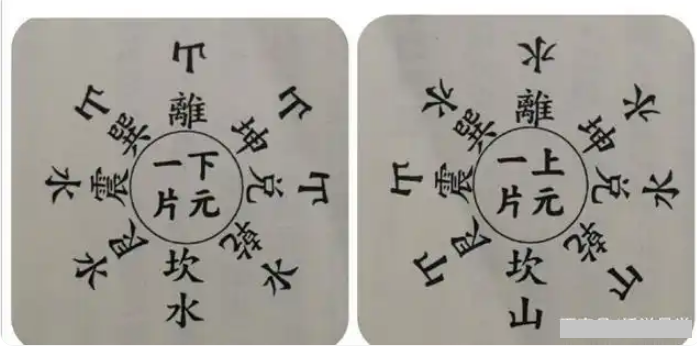 下元
一片
離 山
坤 山
兌 山
乾 水
坎 水
艮 水
震 水
巽 山
上元
一片
離 水
坤 水
兌 水
乾 山
坎 山
艮 山
震 山
巽 水